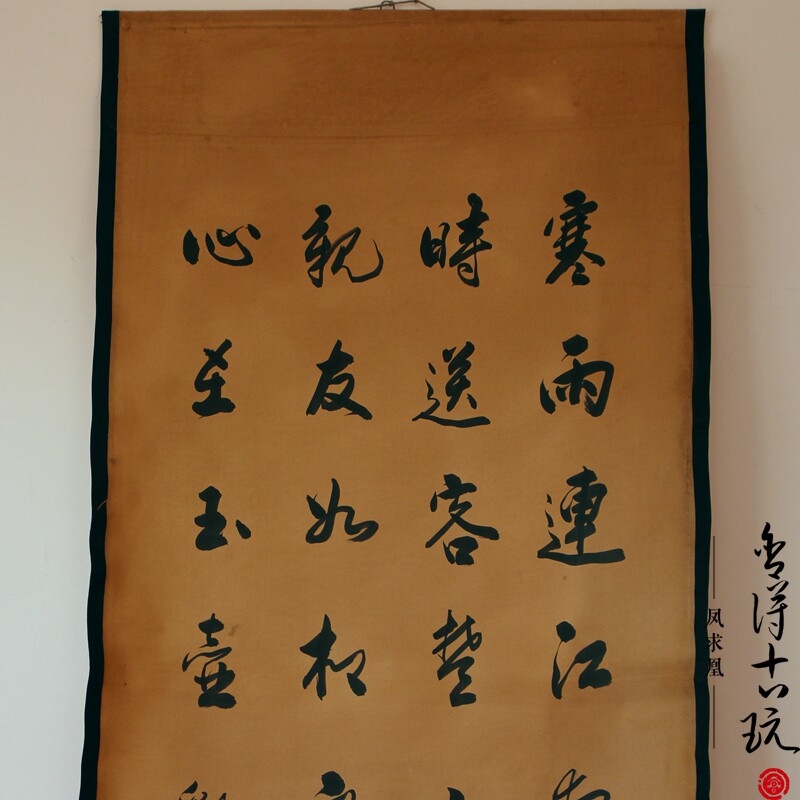 寒雨連江
時送客楚
親友如相
心在玉壺
凤求凰
舍得十八玩